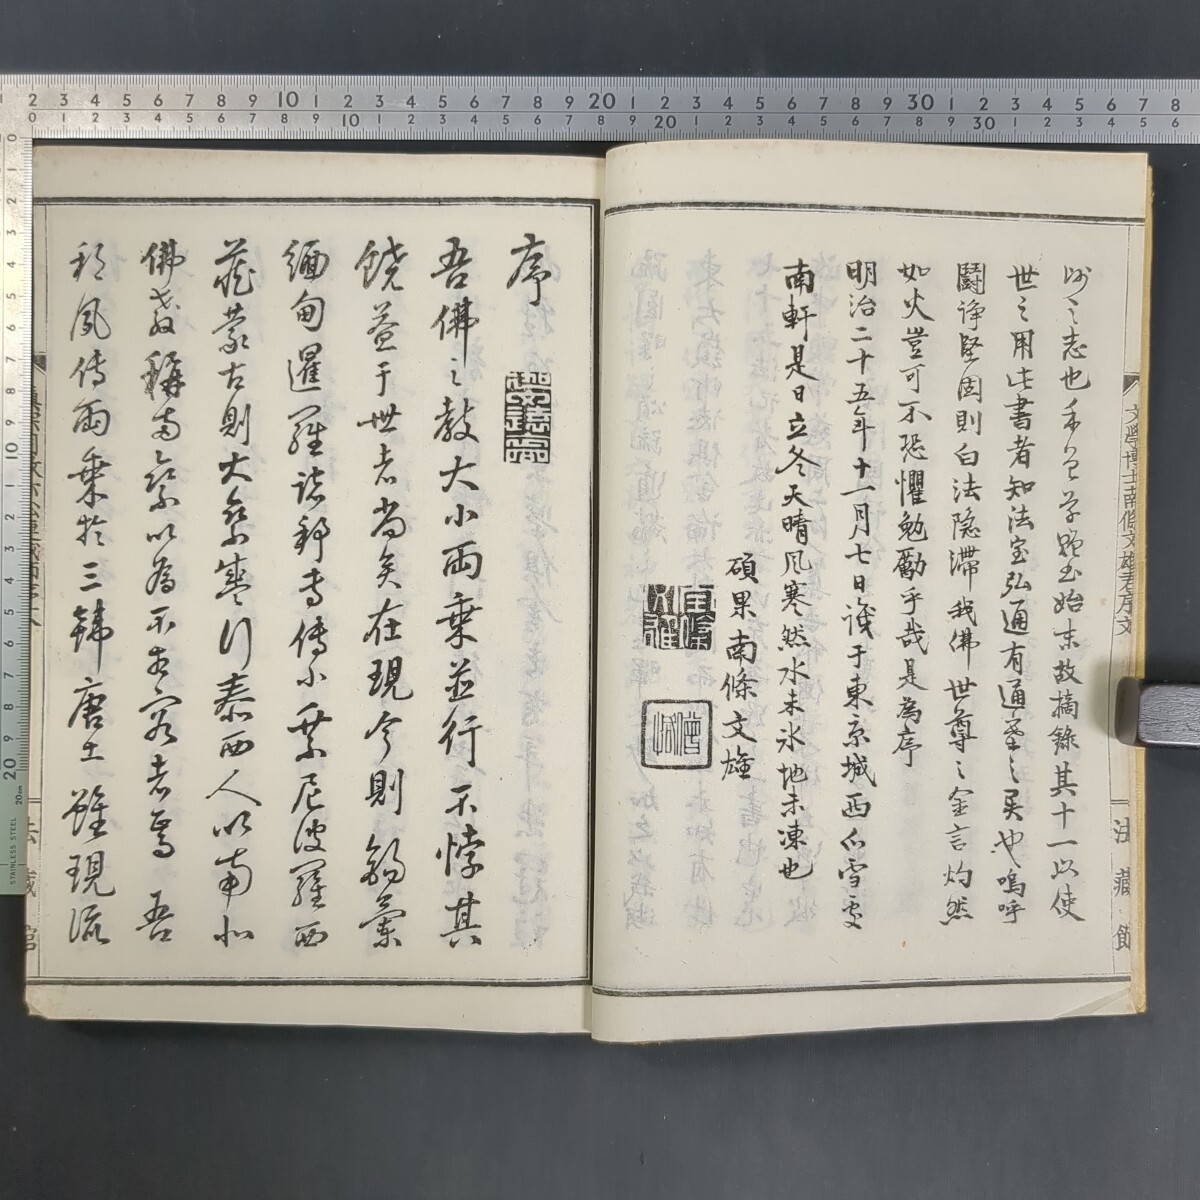 世之用此書者知法寶弘通有通塞之異也嗚呼
鬪諍堅固則白法隐滞我佛世尊之金言灼然
如火豈可不恐懼勉勵乎哉是為序
明治二十五年十一月七日識于東京城西
南軒是日立冬天晴風寒然水未氷地未凍也
碩果南條文雄
南條
文雄
文學博士南條文雄君序文
法藏館
序
吾佛之教大小兩乗並行不悖其
饒益于世者尚矣在現今則錫蘭
緬甸暹羅諸邦専傳小乗尼波羅西
藏蒙古則大乗盛行泰西人以南北
佛教稱为以為不相容者焉吾
祖風傳兩乗於三韓唐土雖現流
法藏館